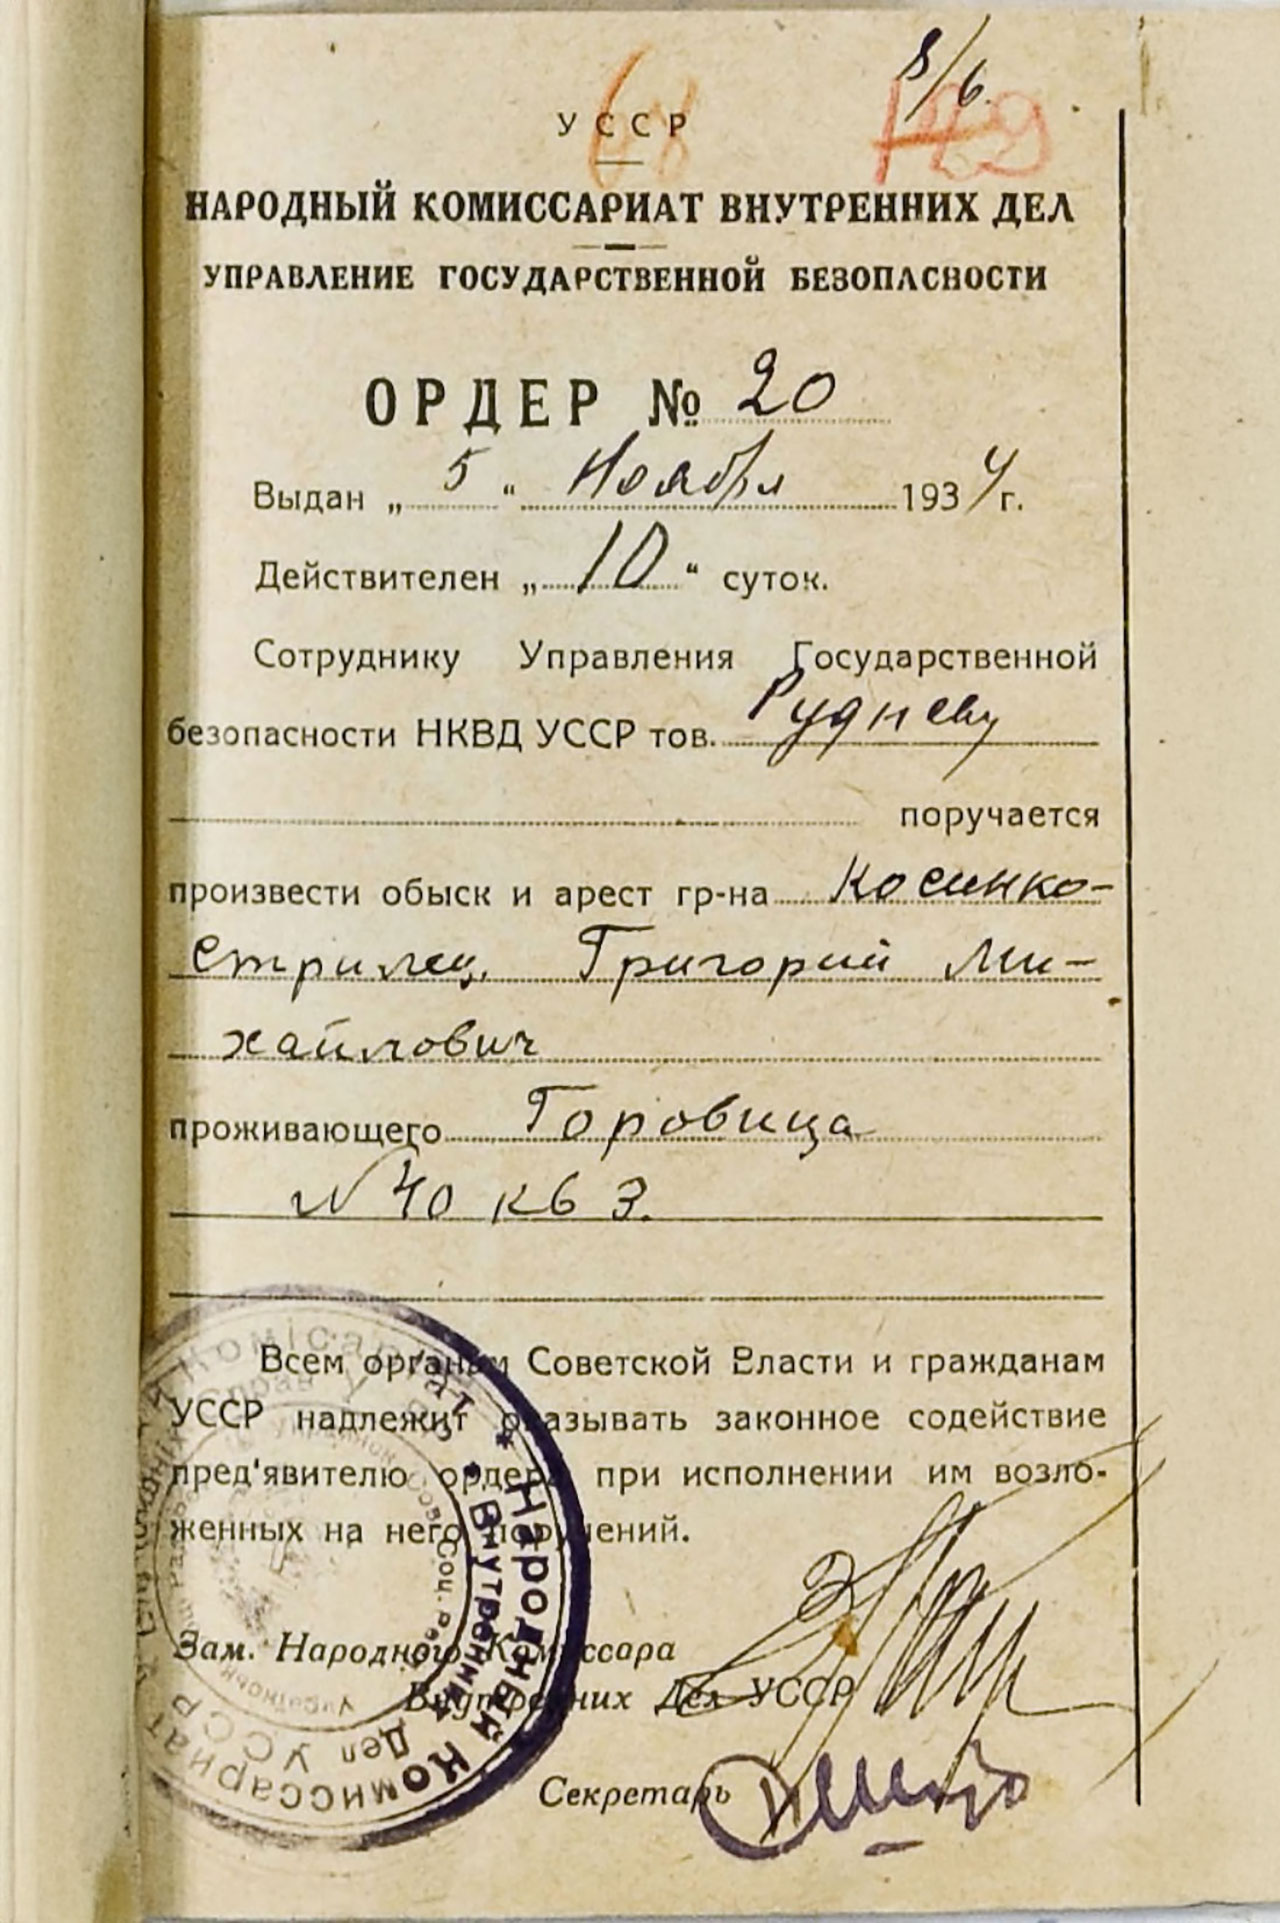 8/6.
68 129
УССР
НАРОДНЫЙ КОМИССАРИАТ ВНУТРЕННИХ ДЕЛ
УПРАВЛЕНИЕ ГОСУДАРСТВЕННОЙ БЕЗОПАСНОСТИ
ОРДЕР № 20
Выдан „ 5 “ Ноября 1934 г.
Действителен „ 10 “ суток.
Сотруднику Управления Государственной
безопасности НКВД УССР тов. Рудневу
поручается
произвести обыск и арест гр-на Косинко-
Стрилец. Григорий Ми-
хайлович
проживающего Горовица
№ 40 кв 3.
Всем органам Советской Власти и гражданам
УССР надлежит оказывать законное содействие
пред'явителю ордера при исполнении им возло-
женных на него поручений.
Зам. Народного Комиссара
Внутренних Дел УССР
Секретарь
Народный Комиссариат
Внутренних Дел УССР